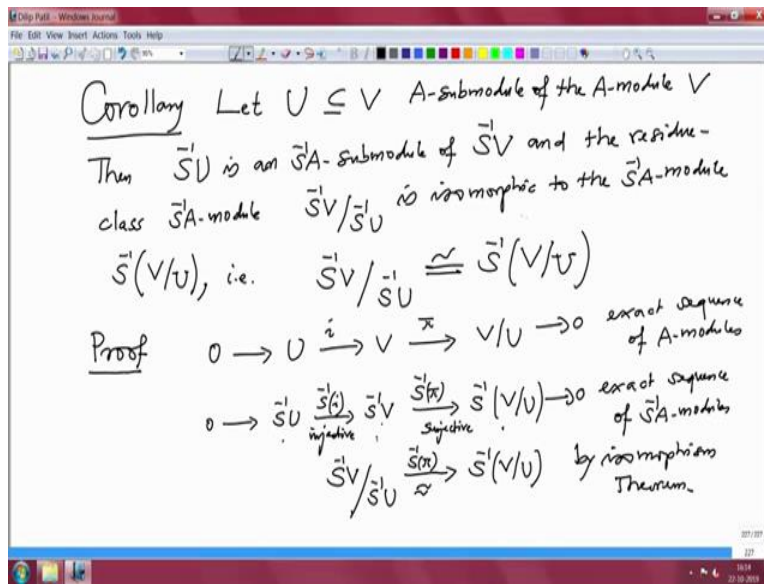 Dilip Patil - Windows Journal
File Edit View Insert Actions Tools Help
Corollary Let U ⊆ V A-submodule of the A-module V
Then S⁻¹U is an S⁻¹A-submodule of S⁻¹V and the residue-
class S⁻¹A-module S⁻¹V/S⁻¹U is isomorphic to the S⁻¹A-module
S⁻¹(V/U), i.e. S⁻¹V/S⁻¹U ≅ S⁻¹(V/U)
Proof 0 → U →^i V →^π V/U → 0 exact sequence
of A-modules
0 → S⁻¹U →^{S⁻¹(i)} S⁻¹V →^{S⁻¹(π)} S⁻¹(V/U) → 0 exact sequence
injective surjective of S⁻¹A-modules
S⁻¹V/S⁻¹U →^{S⁻¹(π)} ≈ S⁻¹(V/U) by isomorphism
Theorem.
227/227
227
16:14
22-10-2019